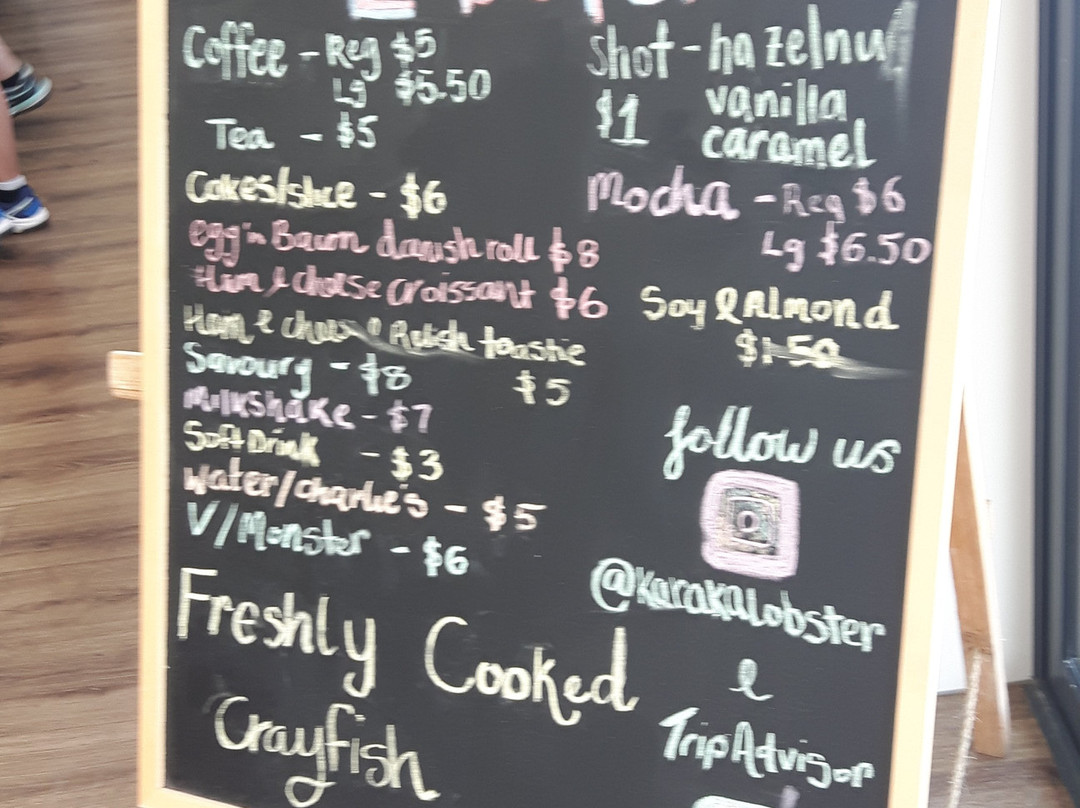 Coffee - Reg $5
Lg $5.50
Tea - $5
Cakes/slice - $6
egg'n Bacon danish roll $8
Ham & cheese croissant $6
Ham & cheese toastie
$5
Savoury - $8
Milkshake - $7
Soft Drink - $3
Water/charlie's - $5
V/Monster - $6
Freshly Cooked
Crayfish
Shot - hazelnut
$1 vanilla
caramel
Mocha - Reg $6
Lg $6.50
Soy & Almond
$1.50
follow us
@karakalobster
&
TripAdvisor